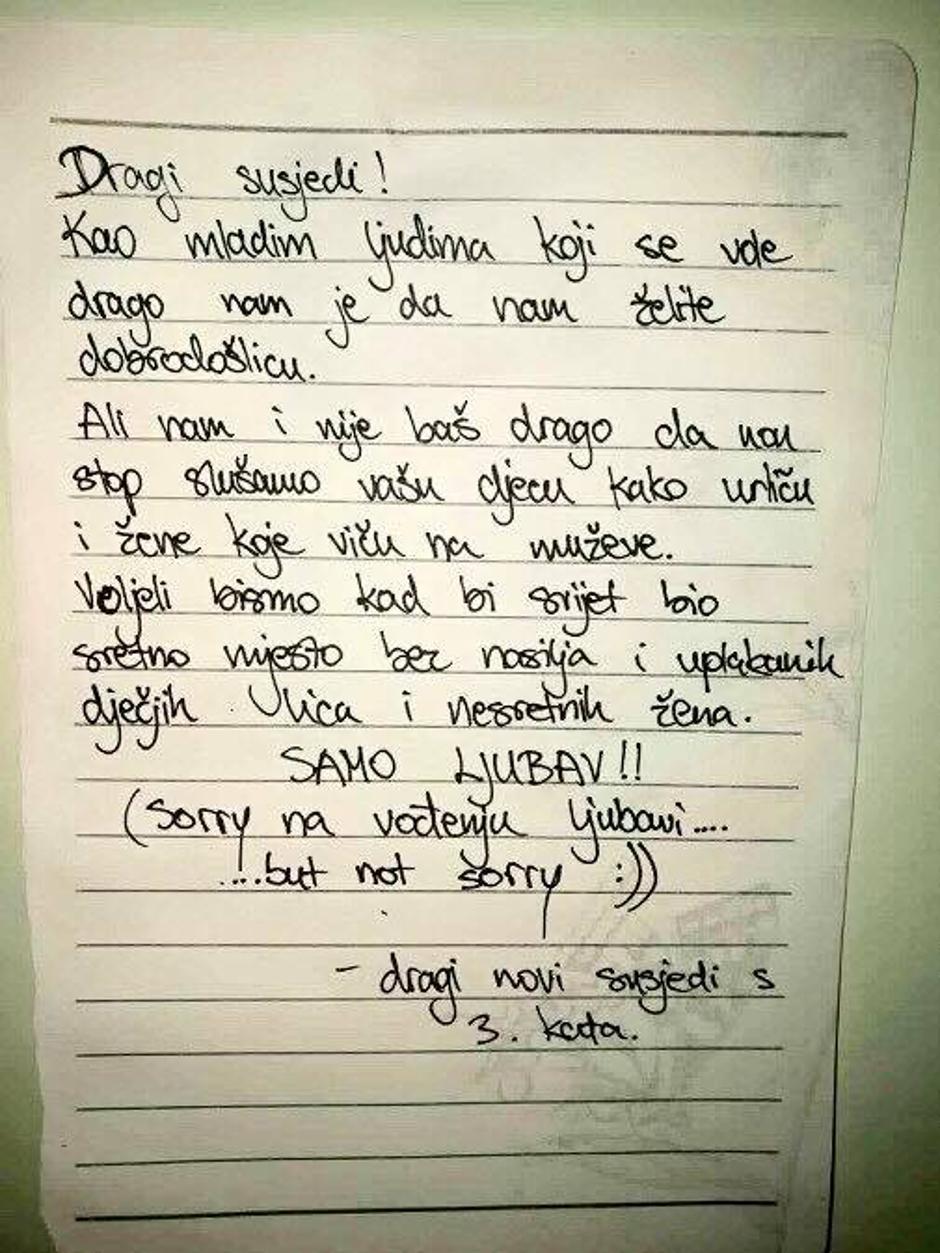 Dragi susjedi!
Kao mladim ljudima koji se vole
drago nam je da nam želite
dobrodošlicu.
Ali nam i nije baš drago da non
stop slušamo vašu djecu kako urliču
i žene koje viču na muževe.
Voljeli bismo kad bi svijet bio
sretno mjesto bez nasilja i uplakanih
dječjih lica i nesretnih žena.
SAMO LJUBAV!!
(Sorry na vođenju ljubavi....
....but not sorry :))
- dragi novi susjedi s
3. kata.